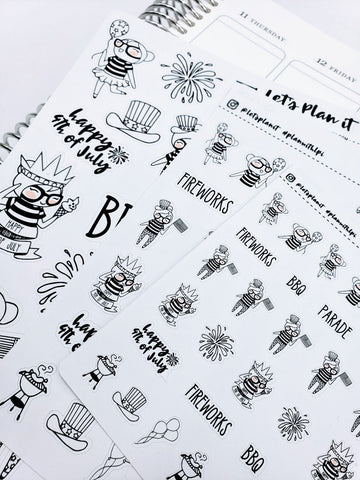 11 THURSDAY
12 FRIDAY
Let's Plan it
@letsplanit #planwithlpi
@letsplanit #planwithlpi
happy
4th of July
FIREWORKS
FIREWORKS
BBQ
PARADE
HAPPY
JULY
happy
4th of July
FIREWORKS
FIREWORKS
BBQ